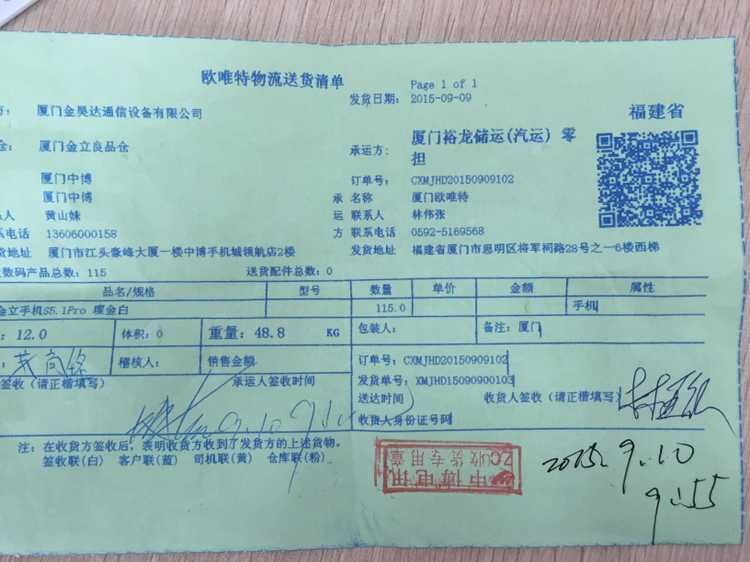 欧唯特物流送货清单
Page 1 of 1
发货日期: 2015-09-09
方: 厦门金昊达通信设备有限公司
福建省
仓: 厦门金立良品仓
承运方: 厦门裕龙储运(汽运) 零担
厦门中博
订单号: CXMJHD20150909102
厦门中博
承 名称 厦门欧唯特
系人 黄山妹
运 联系人 林伟张
系电话 13606000158
方 联系电话 0592-5169568
货地址 厦门市江头豪峰大厦一楼中博手机城领航店2楼
发货地址 福建省厦门市思明区将军祠路28号之一6楼西梯
数码产品总数: 115 送货配件总数: 0
品名/规格 型号 数量 单价 金额 属性
金立手机S5.1Pro 璨金白 115.0 手机
: 12.0 体积: 0 重量: 48.8 KG 包装人: 备注: 厦门
稽核人: 销售金额
订单号: CXMJHD20150909102
发货单号: XMJHD15090900103
签收（请正楷填写） 承运人签收时间
送达时间 收货人签收（请正楷填写）
收货人身份证号码
9.10 9:
注: 在收货方签收后, 表明收货方收到了发货方的上述货物。
签收联(白) 客户联(蓝) 司机联(黄) 仓库联(粉)
中博电讯
ZCU收货专用章
2015.9.10
9:55